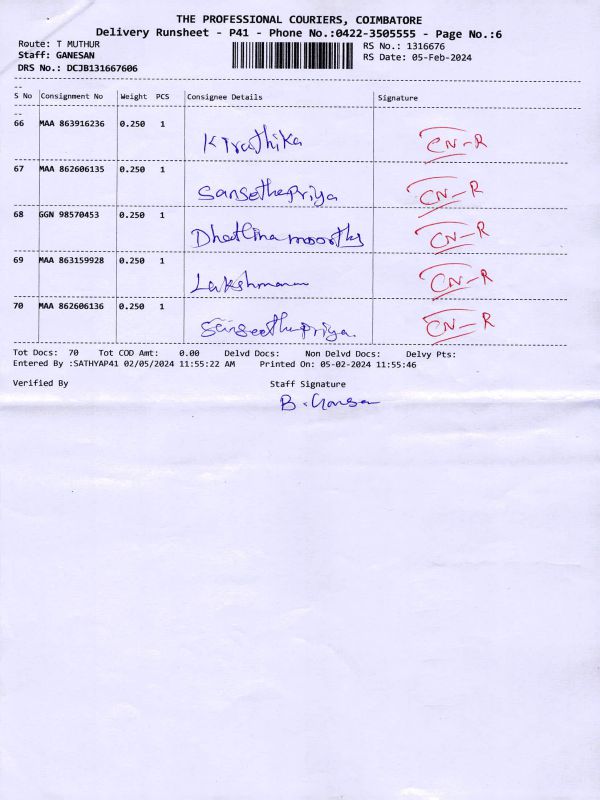 THE PROFESSIONAL COURIERS, COIMBATORE
Delivery Runsheet - P41 - Phone No.:0422-3505555 - Page No.:6
Route: T MUTHUR
RS No.: 1316676
Staff: GANESAN
RS Date: 05-Feb-2024
DRS No.: DCJB131667606
S No Consignment No Weight PCS Consignee Details Signature
66 MAA 863916236 0.250 1
CN-R
67 MAA 862606135 0.250 1
CN-R
68 GGN 98570453 0.250 1
CN-R
69 MAA 863159928 0.250 1
Lakshmanan CN-R
70 MAA 862606136 0.250 1
CN-R
Tot Docs: 70 Tot COD Amt: 0.00 Delvd Docs: Non Delvd Docs: Delvy Pts:
Entered By :SATHYAP41 02/05/2024 11:55:22 AM Printed On: 05-02-2024 11:55:46
Verified By Staff Signature
B. Ganesan